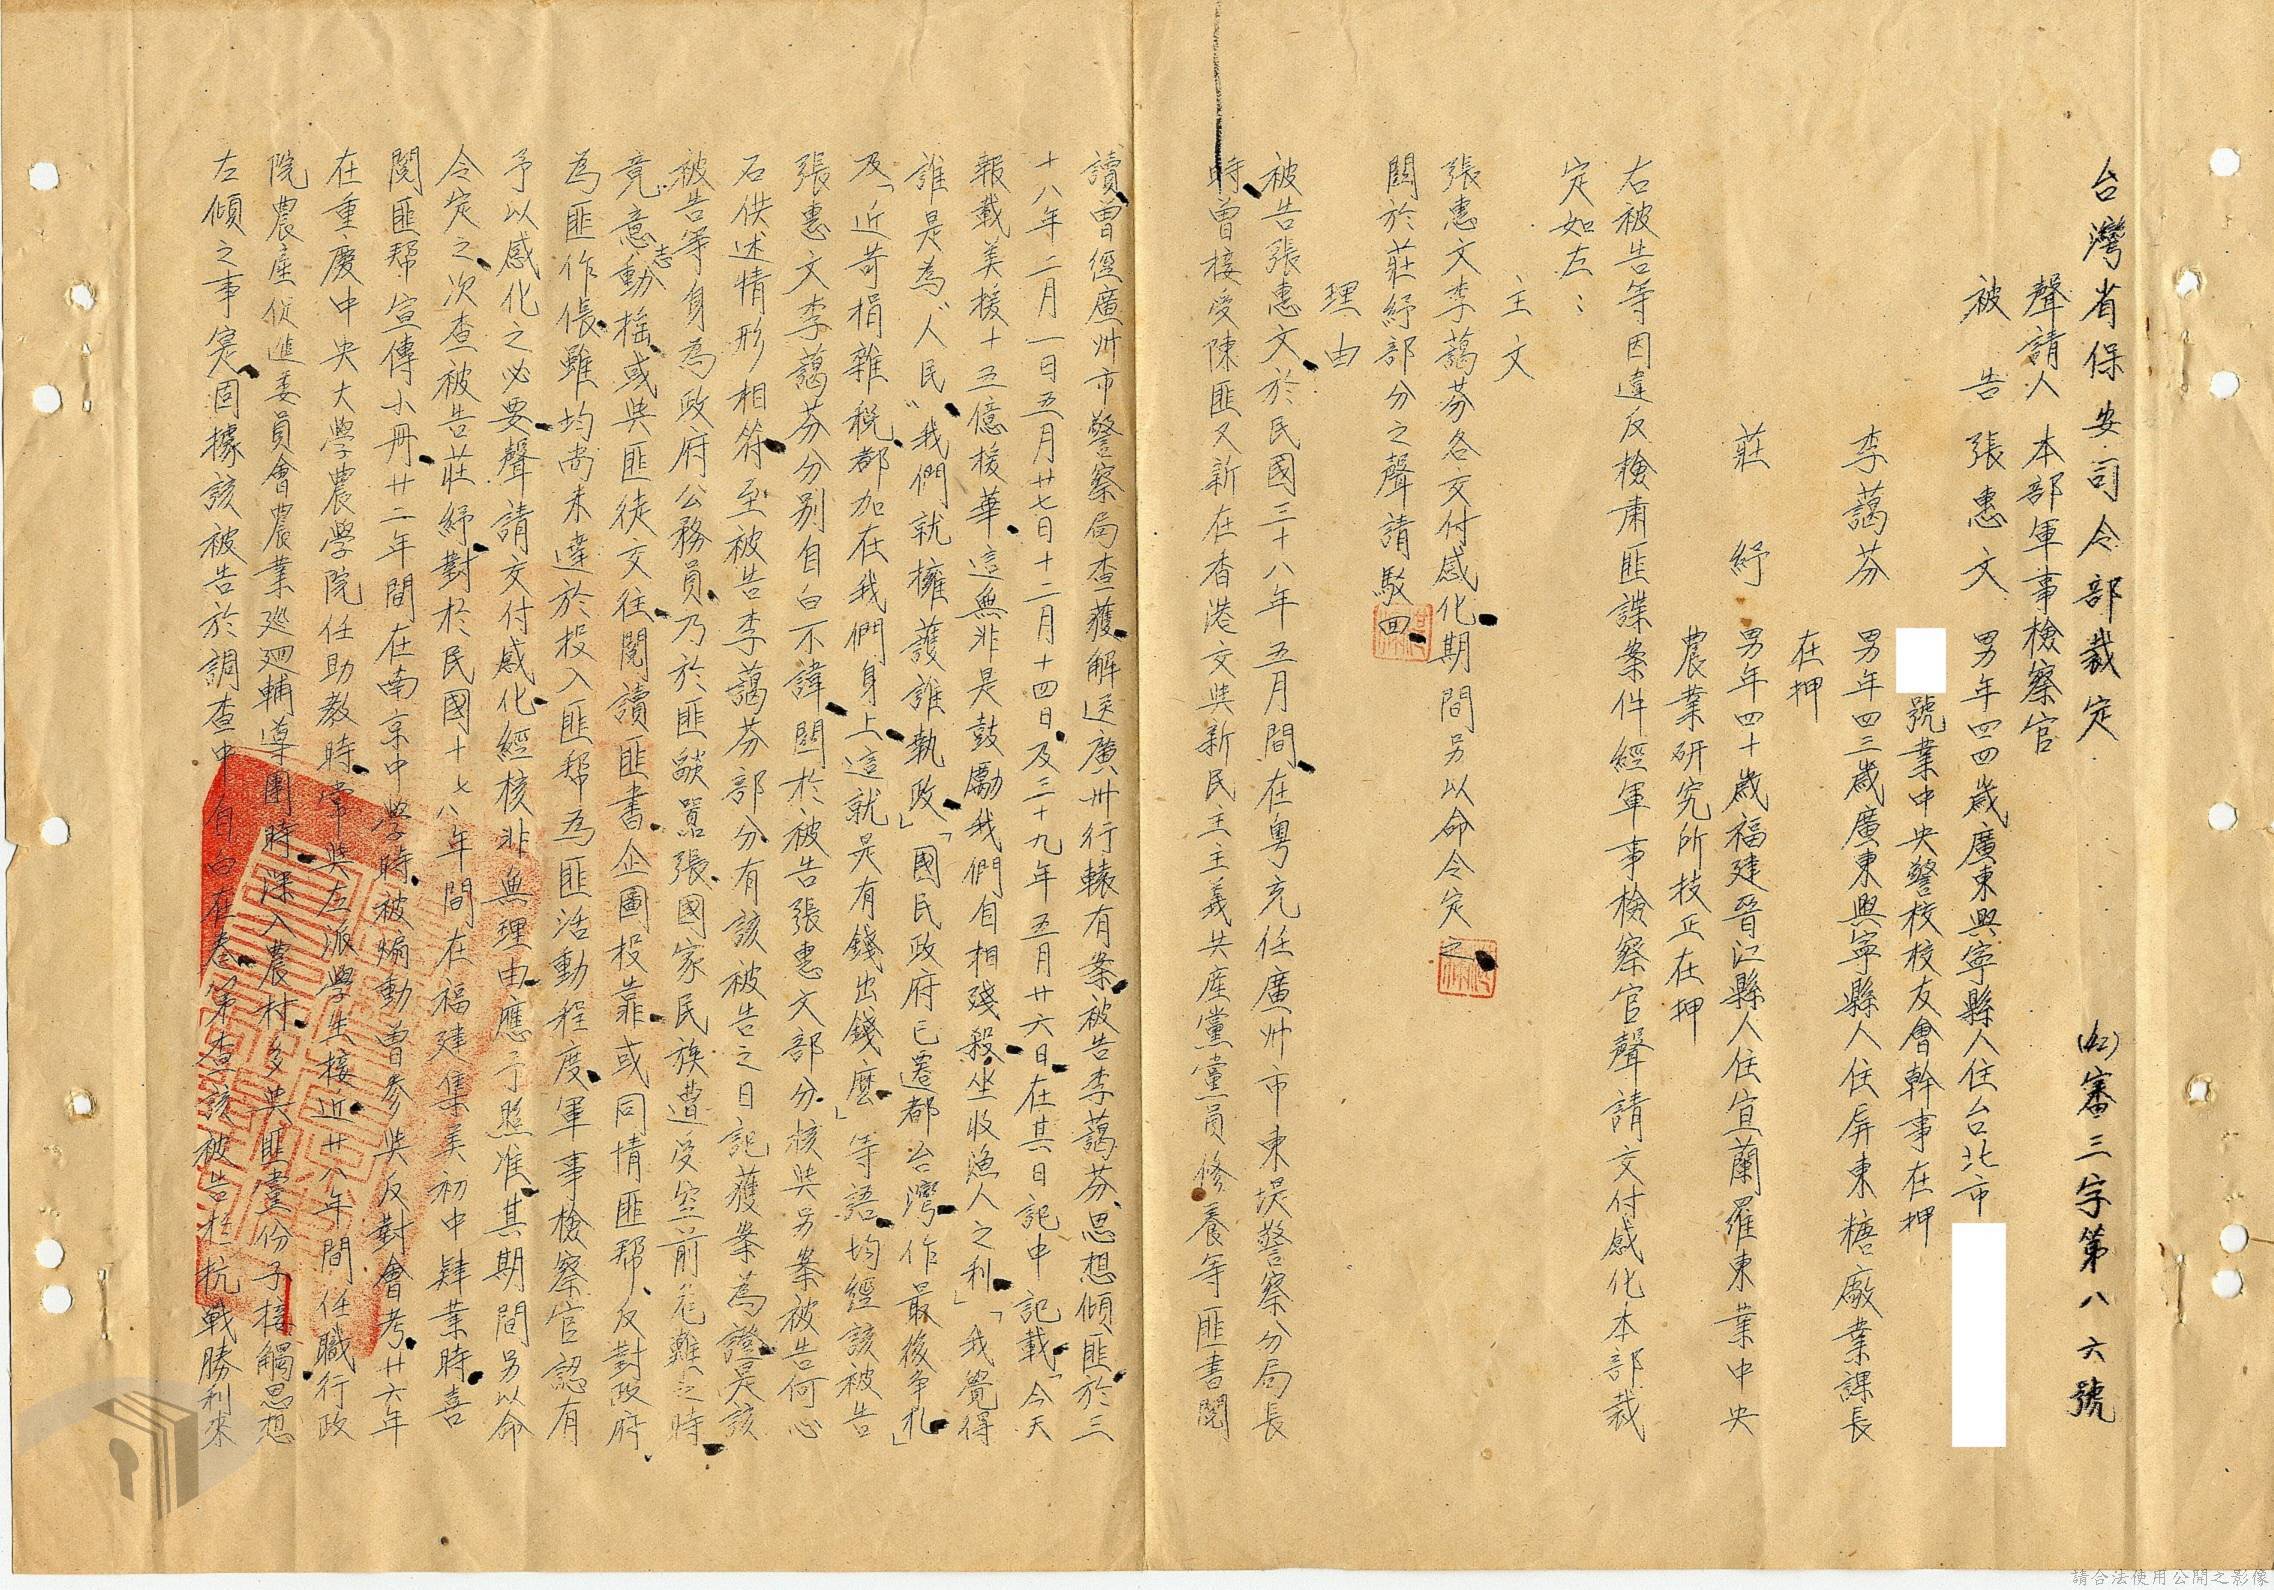 台灣省保安司令部裁定 (42)審三字第八六號
聲請人 本部軍事檢察官
被告 張惠文 男年四四歲廣東興寧縣人住台北市
號業中央警校校友會幹事在押
李藹芬 男年四三歲廣東興寧縣人住屏東糖廠業課長
在押
莊紓 男年四十歲福建晉江縣人住宜蘭羅東業中央
農業研究所技正在押
右被告等因違反檢肅匪諜案件經軍事檢察官聲請交付感化本部裁
定如左：
主文
張惠文李藹芬各交付感化期間另以命令定之
關於莊紓部分之聲請駁回
理由
被告張惠文於民國三十八年五月間在粵充任廣州市東堤警察分局長
時曾接受陳匪又新在香港交與新民主主義共產黨黨員修養等匪書閱
讀曾經廣州市警察局查獲解送廣州行轅有案被告李藹芬思想傾匪於三
十八年二月一日五月廿七日十二月十四日及三十九年五月廿六日在其日記中記載「今天
報載美援十五億援華這無非是鼓勵我們自相殘殺坐收漁人之利」「我覺得
誰是為“人民”我們就擁護誰執政」「國民政府已遷都台灣作最後爭扎」
及「近苛捐雜稅都加在我們身上這就是有錢出錢麼」等語均經該被告
張惠文李藹芬分別自白不諱關於被告張惠文部分核與另案被告何心
石供述情形相符至被告李藹芬部分有該被告之日記獲案為證是該
被告等身為政府公務員乃於匪燄囂張國家民族遭受空前危難之時
竟意志動搖或與匪徒交往閱讀匪書企圖投靠或同情匪幫反對政府
為匪作倀雖均尚未達於投入匪幫為匪活動程度軍事檢察官認有
予以感化之必要聲請交付感化經核非無理由應予照准其期間另以命
令定之次查被告莊紓對於民國十七八年間在福建集美初中肄業時喜
閱匪幫宣傳小冊廿二年間在南京中學時被煽動曾參與反對會考廿六年
在重慶中央大學農學院任助教時常與左派學生接近廿八年間任職行政
院農產促進委員會農業巡迴輔導團時深入農村多與匪黨份子接觸思想
左傾之事寔固據該被告於調查中自白在卷第查該被告在抗戰勝利來
請合法使用公開之影像